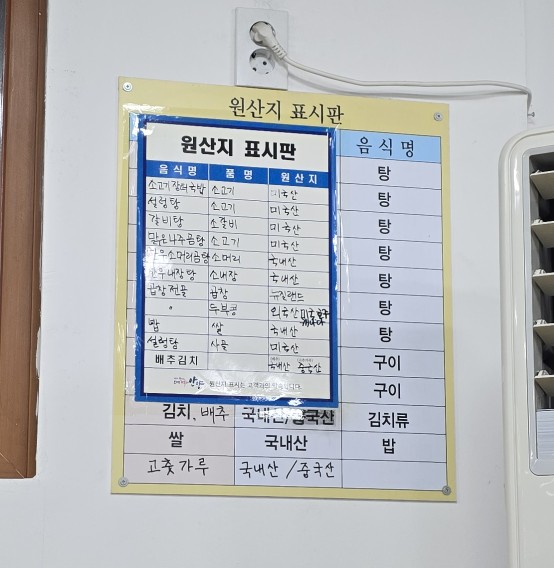 원산지 표시판
원산지 표시판
음식명 품명 원산지
소고기장터국밥 소고기 미국산
설렁탕 소고기 미국산
갈비탕 소갈비 미국산
맑은나주곰탕 소고기 미국산
소머리곰탕 소머리 국내산
내장탕 소내장 국내산
곱창전골 곱창 뉴질랜드
" 두부콩 외국산
밥 쌀 국내산
설렁탕 사골 미국산
배추김치 국내산 중국산
안양 원산지 표시는
음식명
탕
탕
탕
탕
탕
탕
탕
구이
구이
김치, 배추 국내산/중국산 김치류
쌀 국내산 밥
고춧가루 국내산/중국산